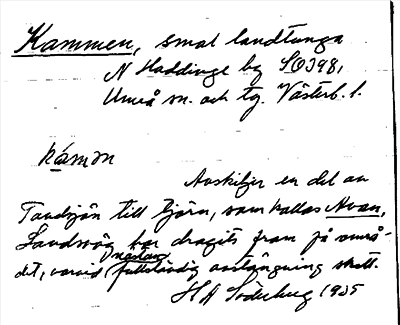 Kammen, smal landtunga
N Haddinge by SO398,
Umeå sn. och tg. Västerb. l.
kámɷn
Avskiljer en del av
Tavelsjön till tjärn, som kallas Avan.
Landsväg har dragits fram på områ-
det, varvid nästan fullständig avstängning skett.
H A Söderberg 1935